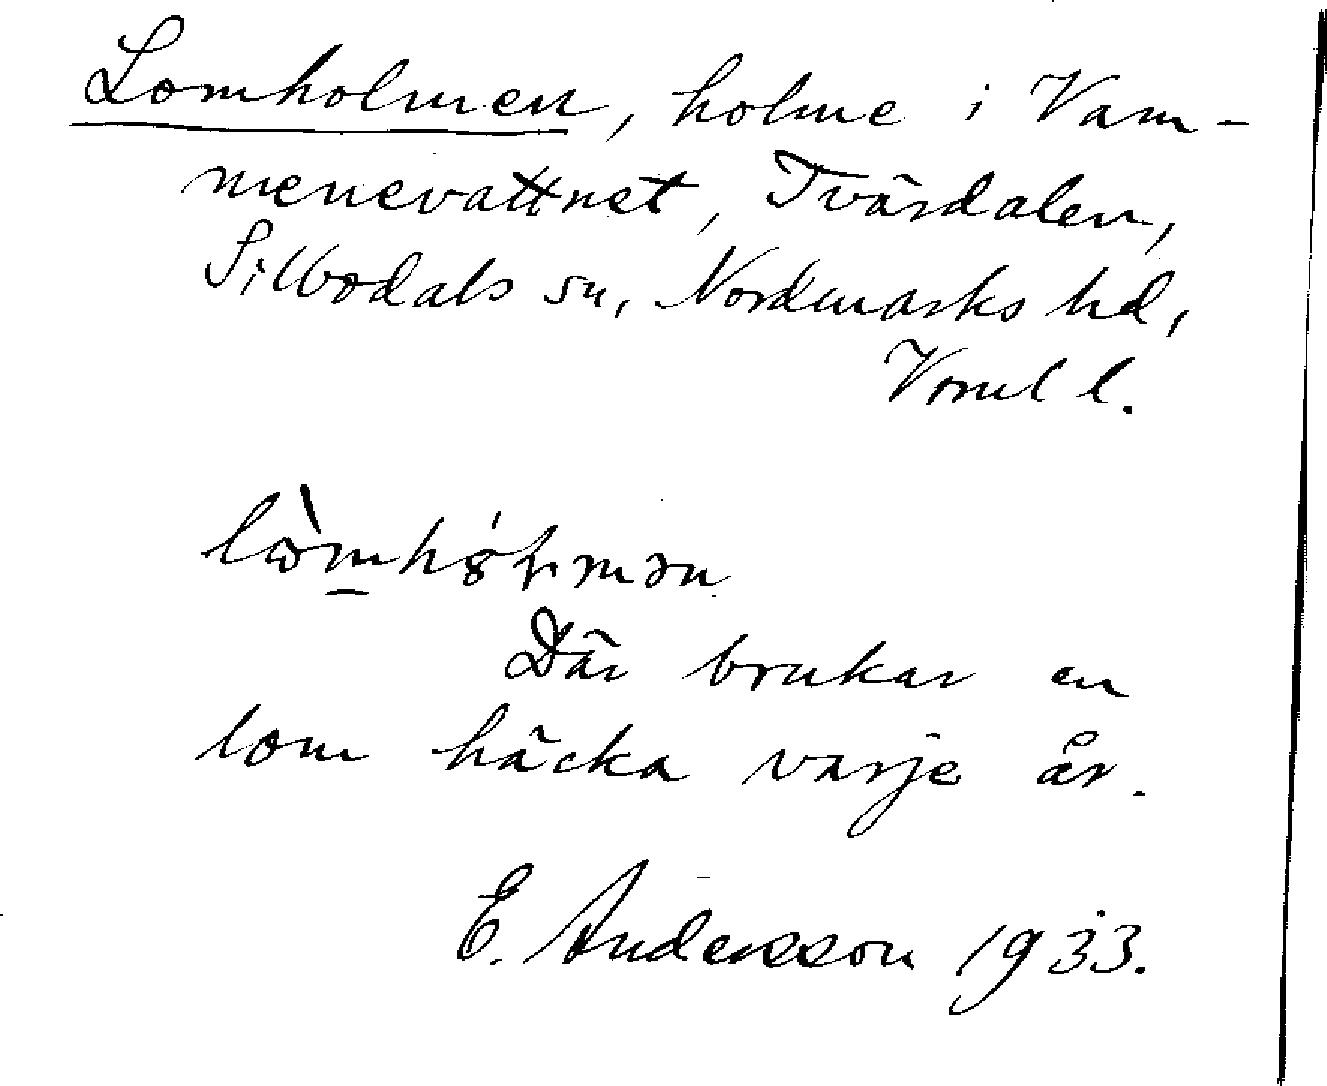 Lomholmen, holme i Vam-
menevattnet, Tvärdalen,
Silbodals sn, Nordmarks hd,
Vrml l.
Där brukar en
lom häcka varje år.
E. Andersson 1933.